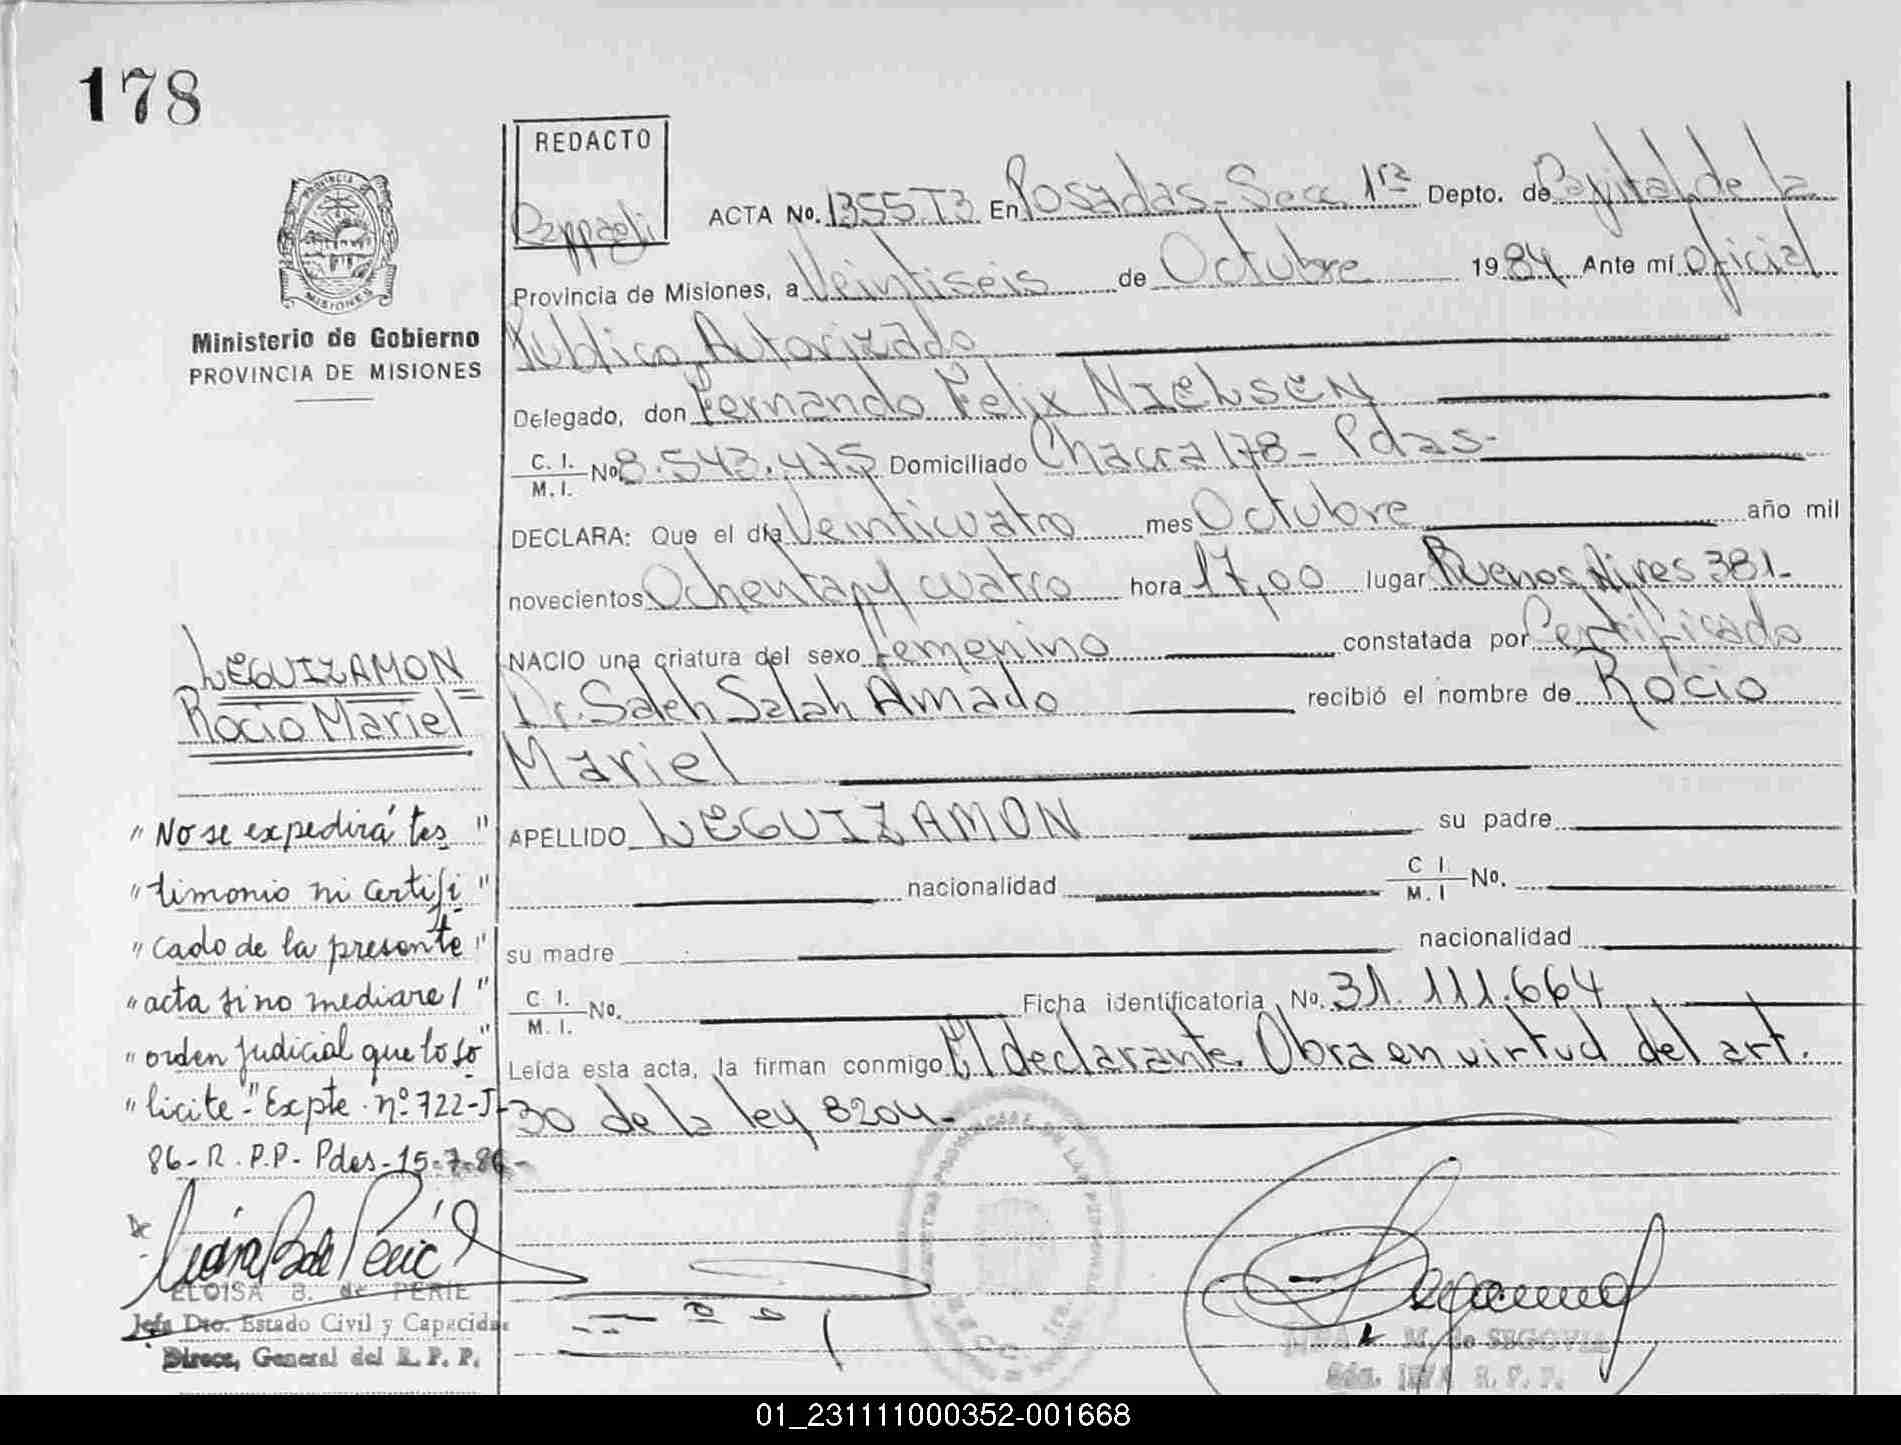 178
REDACTO
ACTA No. 1355 T3 En Posadas - Secc 1ra Depto. de Capital de la
Provincia de Misiones, a Veintiseis de Octubre 1984 Ante mí Oficial
Público Autorizado
Delegado, don Fernando Felix NIELSEN
C. I. M. I. No. 8.543.475 Domiciliado Chacra 178 - Pdas -
DECLARA: Que el día Veinticuatro mes Octubre año mil
novecientos Ochenta y cuatro hora 17,00 lugar Buenos Aires 381-
NACIO una criatura del sexo Femenino constatada por Certificado
Dr. Saleh Salah Amado recibió el nombre de Rocio
Mariel
APELLIDO LEGUIZAMON su padre
nacionalidad C I. M. I No.
su madre nacionalidad
C I. M. I. No. Ficha identificatoria No. 31.111.664
Leída esta acta, la firman conmigo El declarante. Obra en virtud del art.
30 de la ley 8204-
PROVINCIA
MISIONES
Ministerio de Gobierno
PROVINCIA DE MISIONES
LEGUIZAMON
Rocio Mariel
"No se expedirá tes"
"timonio ni certifi"
"cado de la presente"
"acta si no mediare/"
"orden judicial que lo so"
"licite-" Expte. nº 722-J-
86-R.P.P- Pdas-15-7-86-
ELOISA B. de PERIE
Jefa Dto. Estado Civil y Capacidad
Direcc. General del R. P. P.
M. de SEGOVIA
R. P. P.
01_231111000352-001668